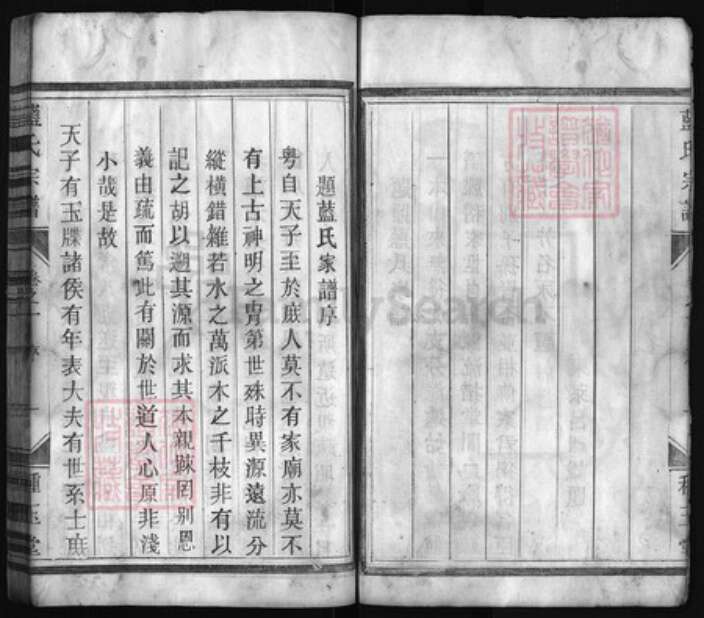 題藍氏家譜序
粤自天子至於庶人莫不有家廟亦莫不
有上古神明之胄第世殊時異源遠流分
縱橫錯雜若水之萬派木之千枝非有以
記之胡以遡其源而求其本親踈罔别恩
義由疏而篤此有關於世道人心原非淺
小哉是故
天子有玉牒諸侯有年表大夫有世系士庶
藍氏宗譜
卷之一
序
種玉堂
FamilySearch